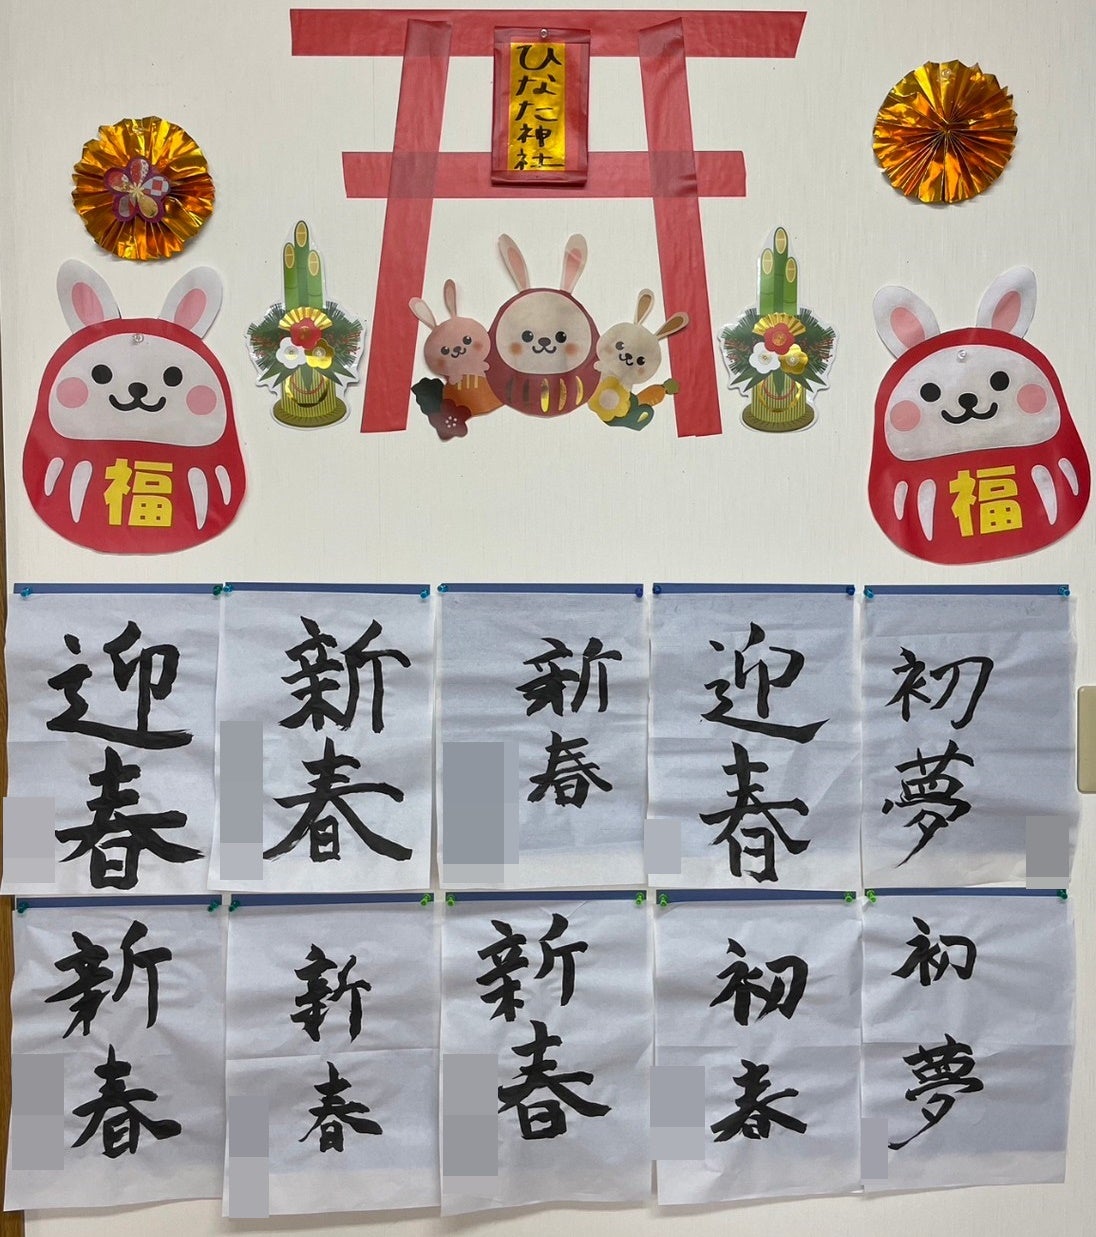 ひなた神社
福
福
迎春
新春
新春
迎春
初夢
新春
新春
新春
初春
初夢